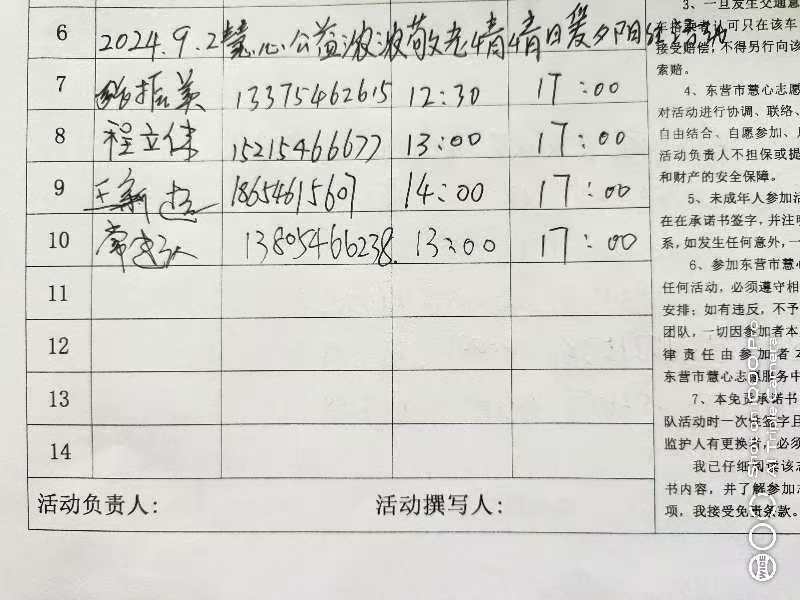 3、一旦发生交通意
6 2024.9.2慧心公益浓浓敬老情情日爱夕阳红活动
车 者认可只在该车
接受赔偿，不得另行向该
索赔。
7 振美 13375462615 12:30 17:00
4、东营市慧心志愿
对活动进行协调、联络、
8 程立伟 15215466677 13:00 17:00
自由结合、自愿参加、
活动负责人不担保或提
和财产的安全保障。
9 王新 18654615607 14:00 17:00
5、未成年人参加活
在在承诺书签字，并注明
10 常 13805466238. 13:00 17:00
系，如发生任何意外，一
6、参加东营市慧心
任何活动，必须遵守相
11
安排；如有违反，不予
团队，一切因参加者本
12
律责任由参加者本
东营市慧心志愿服务中
13
7、本免责承诺书
队活动时一次性签字且
14
监护人有更换者，必须
我已仔细阅读该志
书内容，并了解参加志
活动负责人： 活动撰写人：
项，我接受免责条款。
WIDE